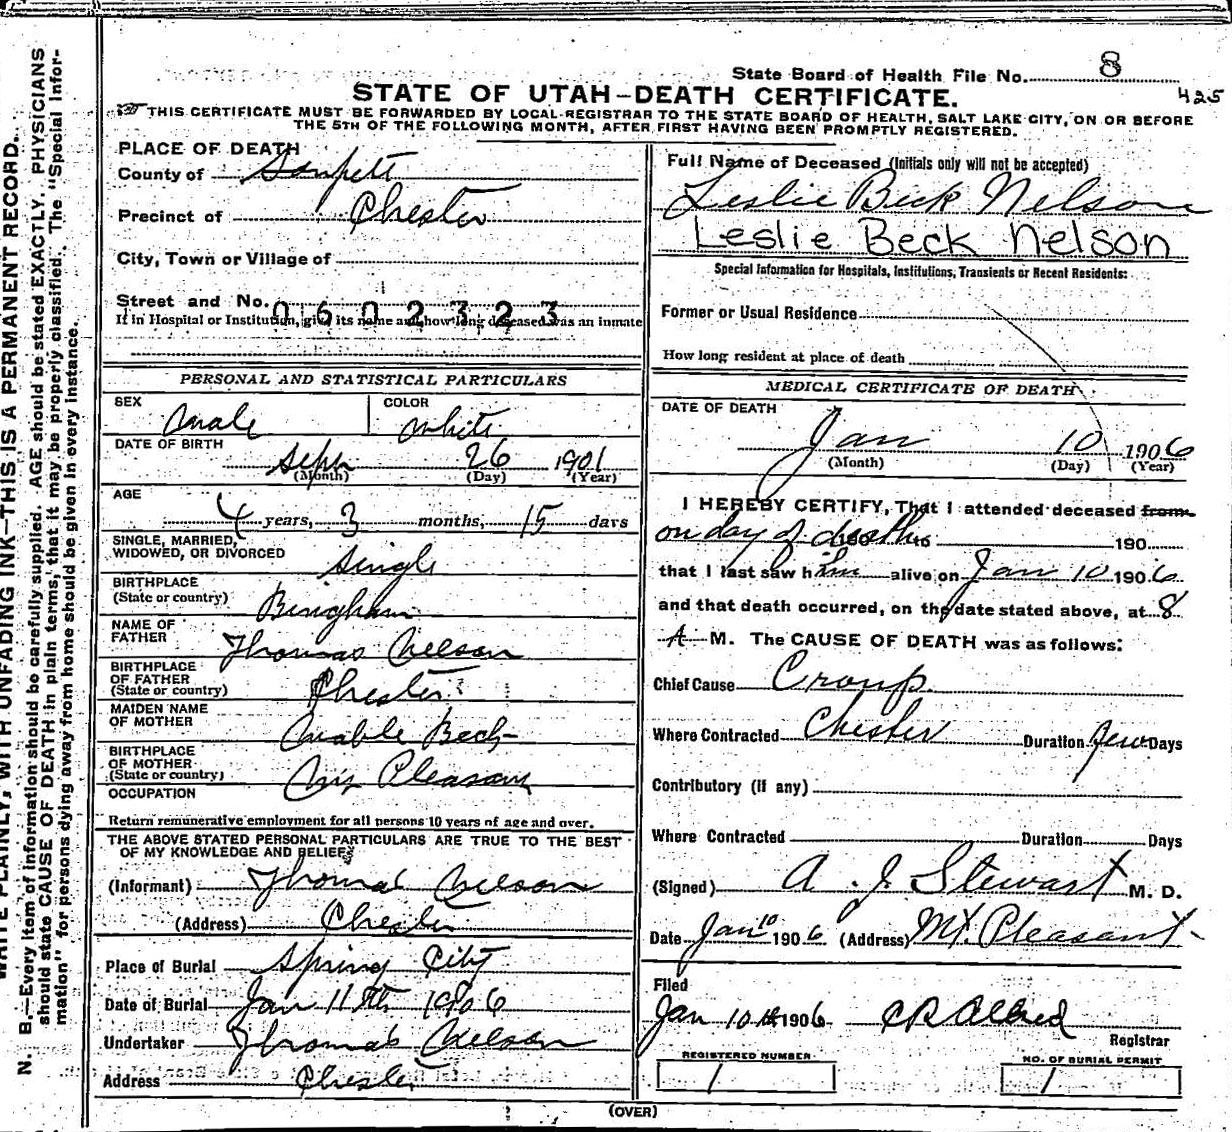 State Board of Health File No. 8
425
STATE OF UTAH—DEATH CERTIFICATE.
THIS CERTIFICATE MUST BE FORWARDED BY LOCAL REGISTRAR TO THE STATE BOARD OF HEALTH, SALT LAKE CITY, ON OR BEFORE
THE 5TH OF THE FOLLOWING MONTH, AFTER FIRST HAVING BEEN PROMPTLY REGISTERED.
PLACE OF DEATH
County of Sanpete
Precinct of Chester
City, Town or Village of
Street and No. 0602323
If in Hospital or Institution, give its name and how long deceased was an inmate
PERSONAL AND STATISTICAL PARTICULARS
SEX Male COLOR White
DATE OF BIRTH
Sept 26 1901
(Month) (Day) (Year)
AGE
4 years, 3 months, 15 days
SINGLE, MARRIED,
WIDOWED, OR DIVORCED Single
BIRTHPLACE
(State or country) Bingham
NAME OF
FATHER Thomas Nelson
BIRTHPLACE
OF FATHER
(State or country) Chester
MAIDEN NAME
OF MOTHER Mable Beck
BIRTHPLACE
OF MOTHER
(State or country) Pleasant
OCCUPATION
Return remunerative employment for all persons 10 years of age and over.
THE ABOVE STATED PERSONAL PARTICULARS ARE TRUE TO THE BEST
OF MY KNOWLEDGE AND BELIEF
(Informant) Thomas Nelson
(Address) Chester
Place of Burial Spring City
Date of Burial Jan 11th 1906
Undertaker Thomas Nelson
Address Chester
Full Name of Deceased (Initials only will not be accepted)
Leslie Beck Nelson
Leslie Beck Nelson
Special Information for Hospitals, Institutions, Transients or Recent Residents:
Former or Usual Residence
How long resident at place of death
MEDICAL CERTIFICATE OF DEATH
DATE OF DEATH
Jan 10 1906
(Month) (Day) (Year)
I HEREBY CERTIFY, That I attended deceased from
on day of death to 190
that I last saw him alive on Jan 10 1906
and that death occurred, on the date stated above, at 8
A M. The CAUSE OF DEATH was as follows:
Chief Cause Croup.
Where Contracted Chester Duration few Days
Contributory (if any)
Where Contracted Duration Days
(Signed) A. J. Stewart M. D.
Date Jan 10 1906 (Address) Mt. Pleasant
Filed
Jan 10th 1906 C R Allred
Registrar
REGISTERED NUMBER
1
NO. OF BURIAL PERMIT
1
(OVER)
WRITE PLAINLY, WITH UNFADING INK—THIS IS A PERMANENT RECORD.
N. B.—Every item of information should be carefully supplied. AGE should be stated EXACTLY. PHYSICIANS
should state CAUSE OF DEATH in plain terms, that it may be properly classified. The "Special Infor-
mation" for persons dying away from home should be given in every instance.